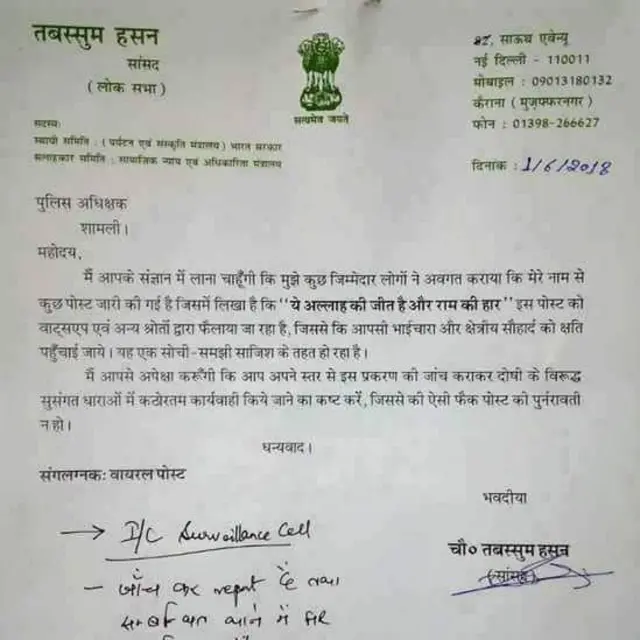 तबस्सुम हसन
सांसद
(लोक सभा)
सत्यमेव जयते
82, साऊथ एवेन्यू
नई दिल्ली - 110011
मोबाइल : 09013180132
कैराना (मुज़फ्फरनगर)
फोन : 01398-266627
सदस्य:
स्थायी समिति : (पर्यटन एवं संस्कृति मंत्रालय) भारत सरकार
सलाहकार समिति : सामाजिक न्याय एवं अधिकारिता मंत्रालय
दिनांक : 1/6/2018
पुलिस अधिक्षक
शामली।
महोदय,
मैं आपके संज्ञान में लाना चाहूँगी कि मुझे कुछ जिम्मेदार लोगों ने अवगत कराया कि मेरे नाम से
कुछ पोस्ट जारी की गई है जिसमें लिखा है कि "ये अल्लाह की जीत है और राम की हार" इस पोस्ट को
वाट्सएप एवं अन्य श्रोतों द्वारा फैलाया जा रहा है, जिससे कि आपसी भाईचारा और क्षेत्रीय सौहार्द को क्षति
पहुँचाई जाये। यह एक सोची-समझी साजिश के तहत हो रहा है।
मैं आपसे अपेक्षा करूँगी कि आप अपने स्तर से इस प्रकरण की जांच कराकर दोषी के विरूद्ध
सुसंगत धाराओं में कठोरतम कार्यवाही किये जाने का कष्ट करें, जिससे की ऐसी फैक पोस्ट की पुर्नरावती
न हो।
धन्यवाद।
संगलग्नक: वायरल पोस्ट
भवदीया
चौ० तबस्सुम हसन
(सांसद)
→ I/C Surveillance Cell
- जाँच कर report दें तथा
में FIR